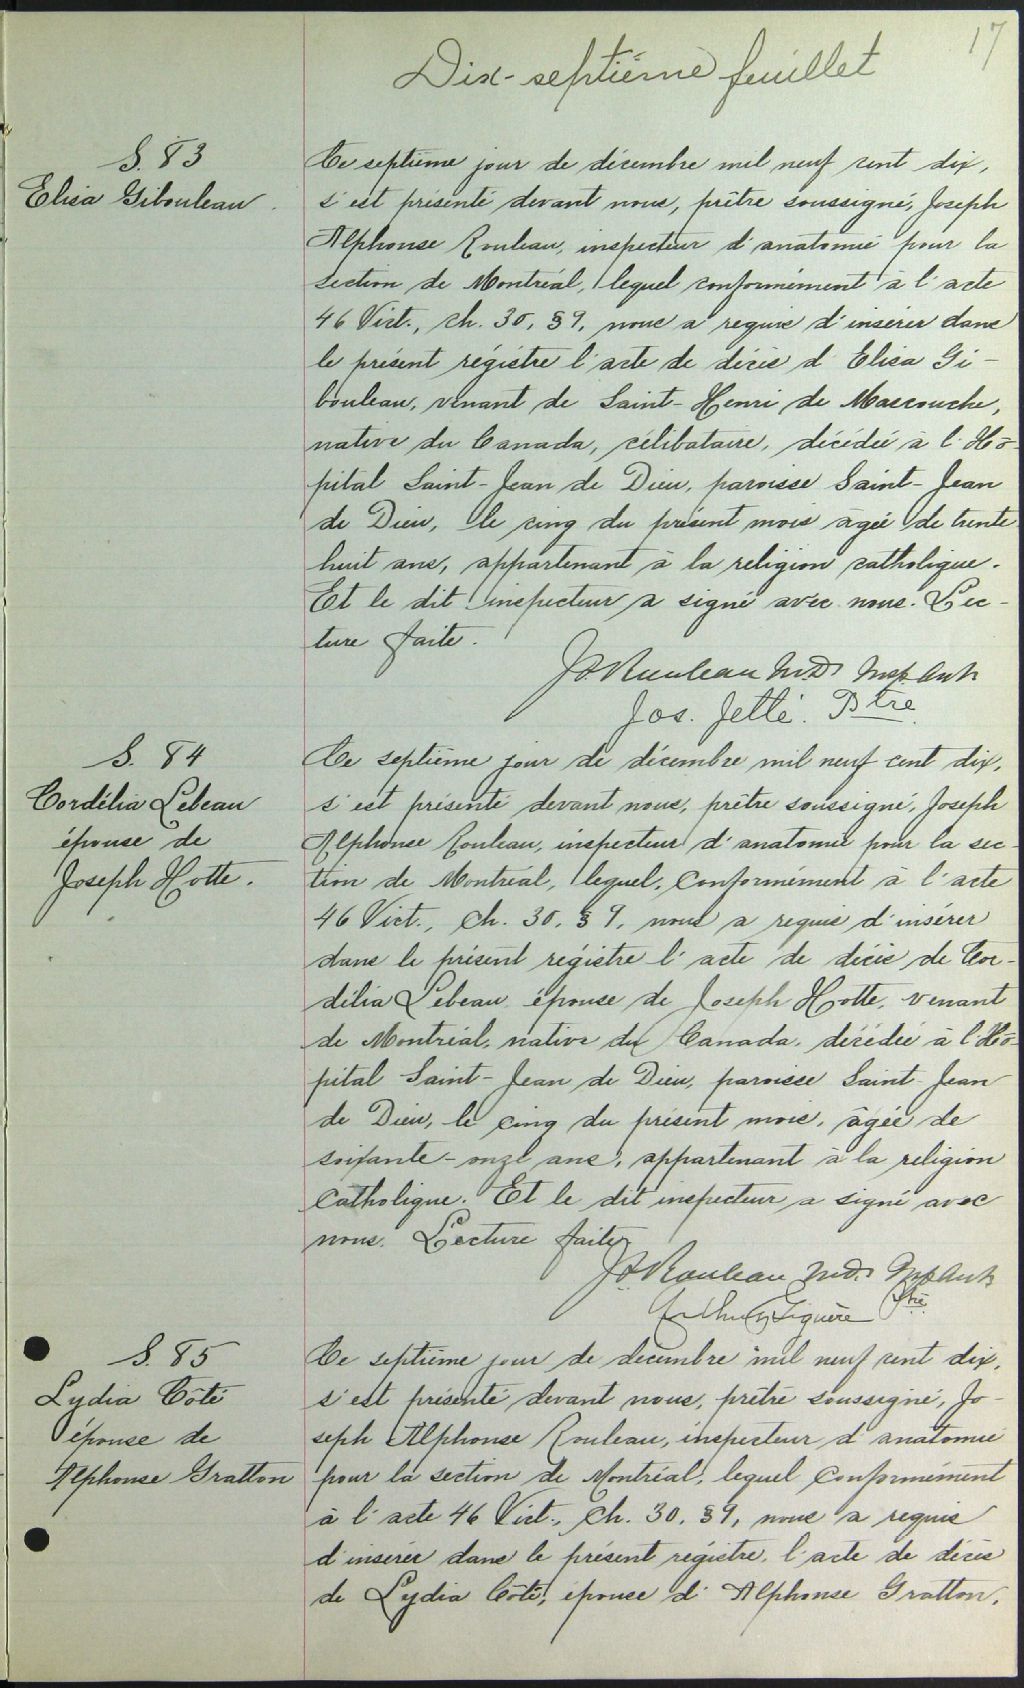 17
Dix-septième feuillet
S. 83
Elisa Gibouleau.
Ce septième jour de décembre mil neuf cent dix,
s'est présenté devant nous, prêtre soussigné, Joseph
Alphonse Rouleau, inspecteur d'anatomie pour la
section de Montréal, lequel conformément à l'acte
46 Vict., ch. 30, §9, nous a requis d'insérer dans
le présent régistre l'acte de décès d'Elisa Gi-
bouleau, venant de Saint-Henri de Mascouche,
native du Canada, célibataire, décédée à l'Hô-
pital Saint-Jean de Dieu, paroisse Saint-Jean
de Dieu, le cinq du présent mois âgée de trente
huit ans, appartenant à la religion catholique.
Et le dit inspecteur a signé avec nous. Lec-
ture faite.
JA Rouleau M.D. Insp. Anat.
Jos. Jetté. Ptre
S. 84
Cordélia Lebeau
épouse de
Joseph Hotte.
Ce septième jour de décembre mil neuf cent dix,
s'est présenté devant nous, prêtre soussigné, Joseph
Alphonse Rouleau, inspecteur d'anatomie pour la sec-
tion de Montréal, lequel, conformément à l'acte
46 Vict., ch. 30, §9, nous a requis d'insérer
dans le présent régistre l'acte de décès de Cor-
délia Lebeau, épouse de Joseph Hotte, venant
de Montréal, native du Canada, décédée à l'Hô-
pital Saint-Jean de Dieu, paroisse Saint-Jean
de Dieu, le cinq du présent mois, âgée de
soixante-onze ans, appartenant à la religion
catholique. Et le dit inspecteur a signé avec
nous. Lecture faite.
JA Rouleau M.D. Insp. Anat.
Arthur Giguère Ptre
S. 85
Lydia Côté
épouse de
Alphonse Gratton
Ce septième jour de décembre mil neuf cent dix,
s'est présenté devant nous, prêtre soussigné, Jo-
seph Alphonse Rouleau, inspecteur d'anatomie
pour la section de Montréal, lequel conformément
à l'acte 46 Vict., ch. 30, §9, nous a requis
d'insérer dans le présent régistre, l'acte de décès
de Lydia Côté, épouse d'Alphonse Gratton,